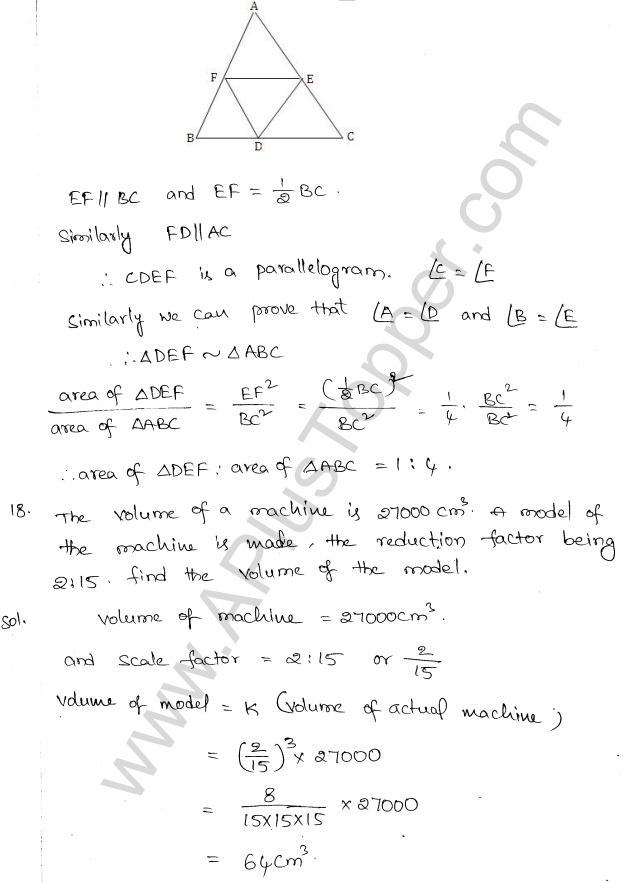 A
F
E
B
D
C
EF || BC and EF = 1/2 BC.
Similarly FD || AC
∴ CDEF is a parallelogram. ∠C = ∠F
Similarly we can prove that ∠A = ∠D and ∠B = ∠E
∴ ΔDEF ~ ΔABC
area of ΔDEF / area of ΔABC = EF² / BC² = (1/2 BC)² / BC² = 1/4 · BC² / BC² = 1/4
∴ area of ΔDEF : area of ΔABC = 1 : 4.
18. The volume of a machine is 27000 cm³. A model of
the machine is made, the reduction factor being
2:15. find the volume of the model.
Sol. Volume of machine = 27000cm³.
and scale factor = 2:15 or 2/15
Volume of model = K (volume of actual machine)
= (2/15)³ × 27000
= 8 / 15×15×15 × 27000
= 64cm³.
www.APlusTopper.com